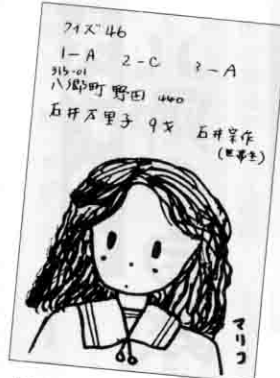 クイズ46
1-A 2-C 3-A
315-01
八郷町 野田 440
石井万里子 9才 石井宗作
(世帯主)
マリコ